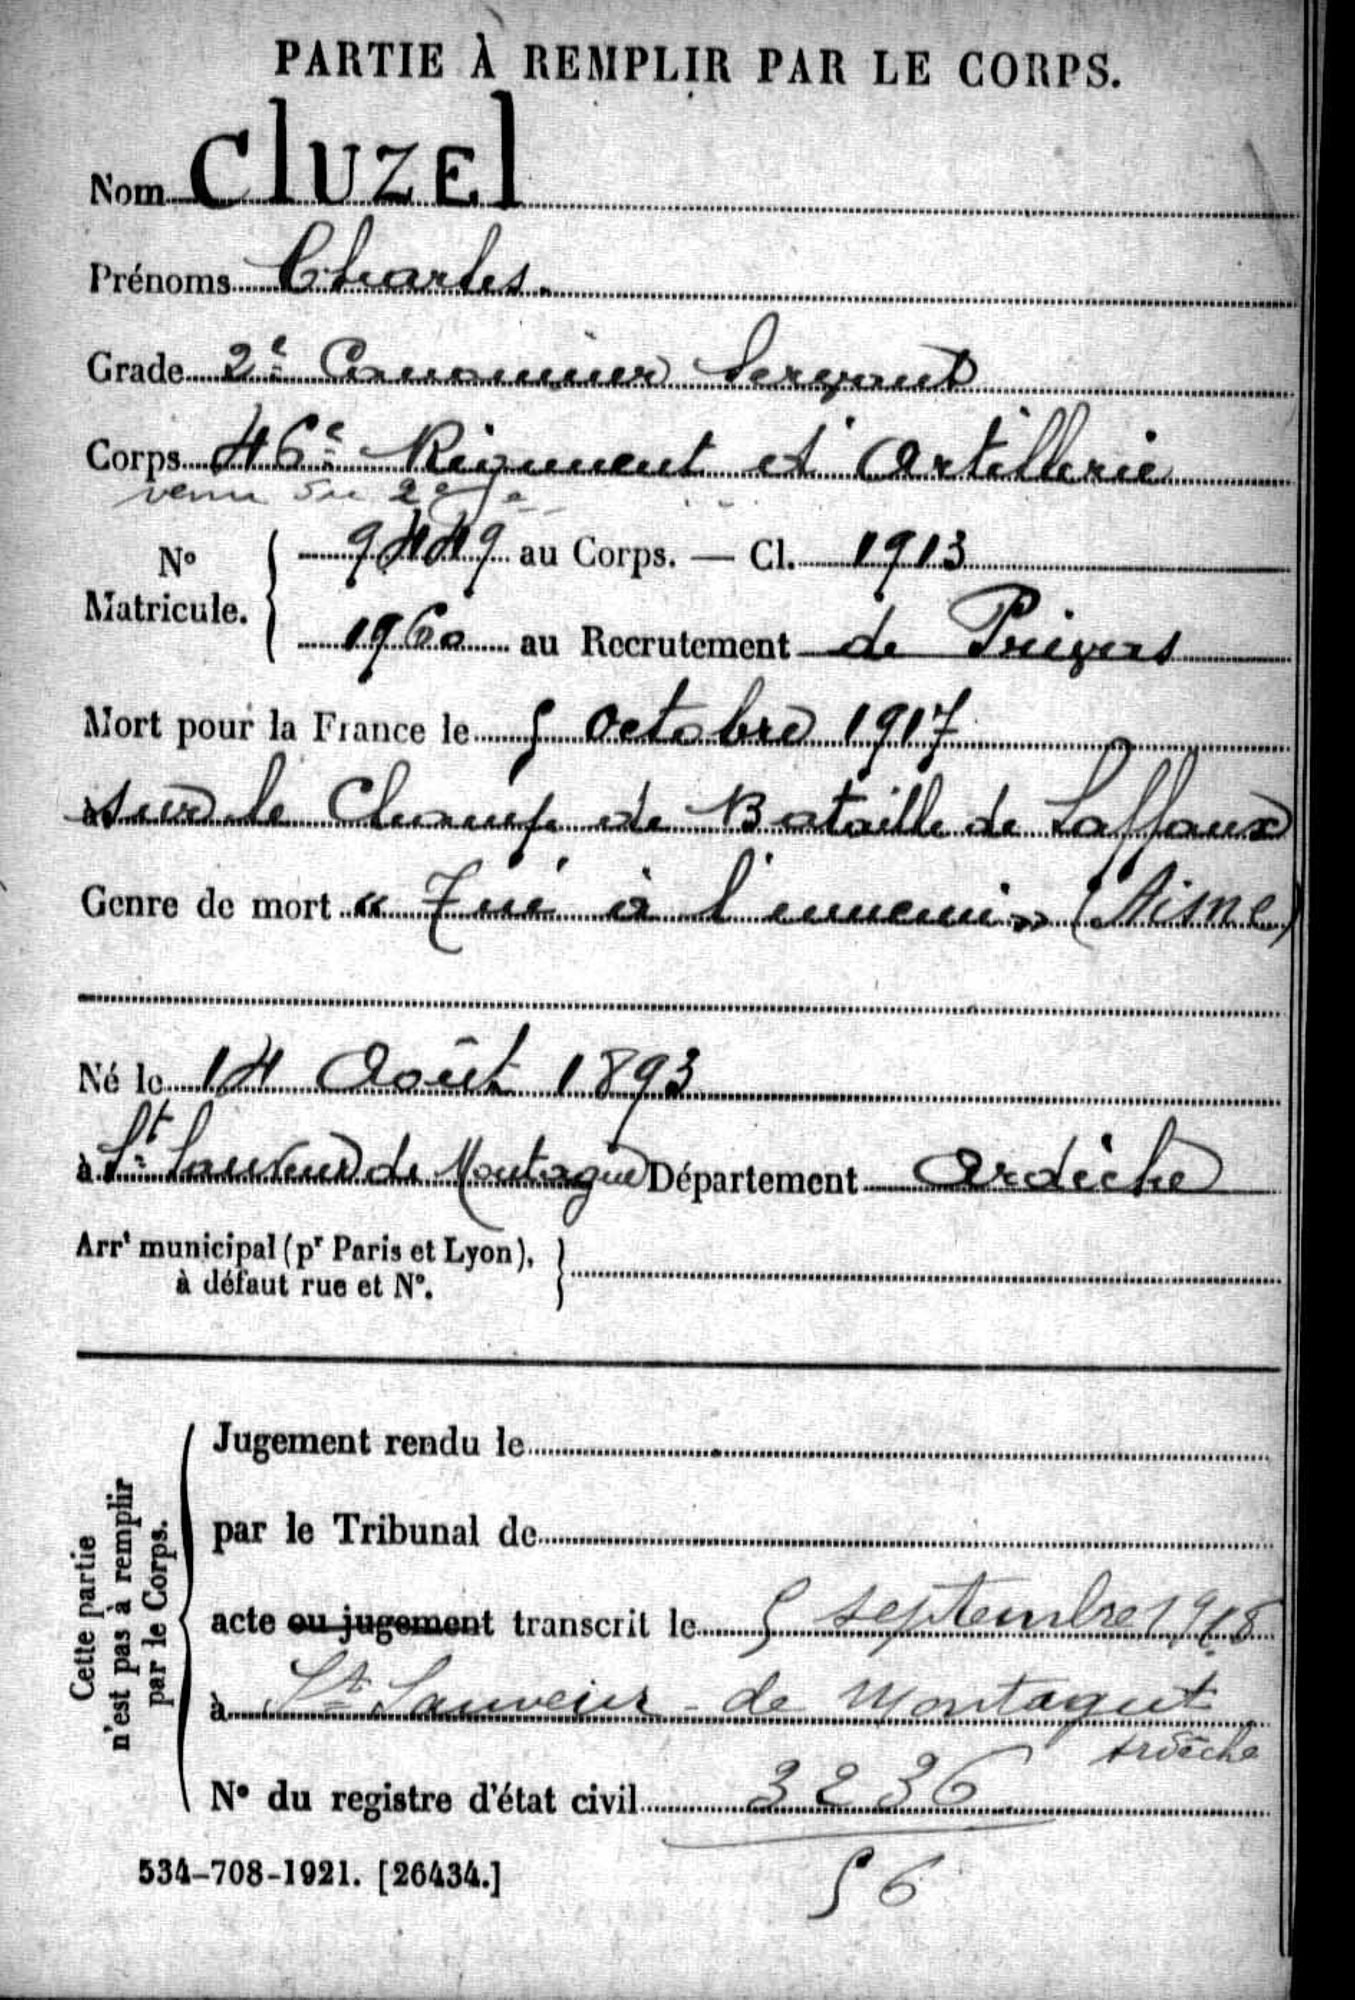 PARTIE À REMPLIR PAR LE CORPS.
Nom Cluzel
Prénoms Charles.
Grade 2e Canonnier Servant
Corps 46e Régiment d'Artillerie
venu du 2e
No Matricule. 9449 au Corps. — Cl. 1913
1960 au Recrutement de Privas
Mort pour la France le 5 octobre 1917
à sur le Champ de Bataille de Laffaux
Genre de mort « Tué à l'ennemi » (Aisne)
Né le 14 Août 1893
à St Sauveur de Montagut Département Ardèche
Arrt municipal (pr Paris et Lyon),
à défaut rue et No.
Cette partie
n'est pas à remplir
par le Corps.
Jugement rendu le
par le Tribunal de
acte ou jugement transcrit le 5 septembre 1918
à St Sauveur-de Montagut
Ardèche
No du registre d'état civil 3236
534-708-1921. [26434.]
56